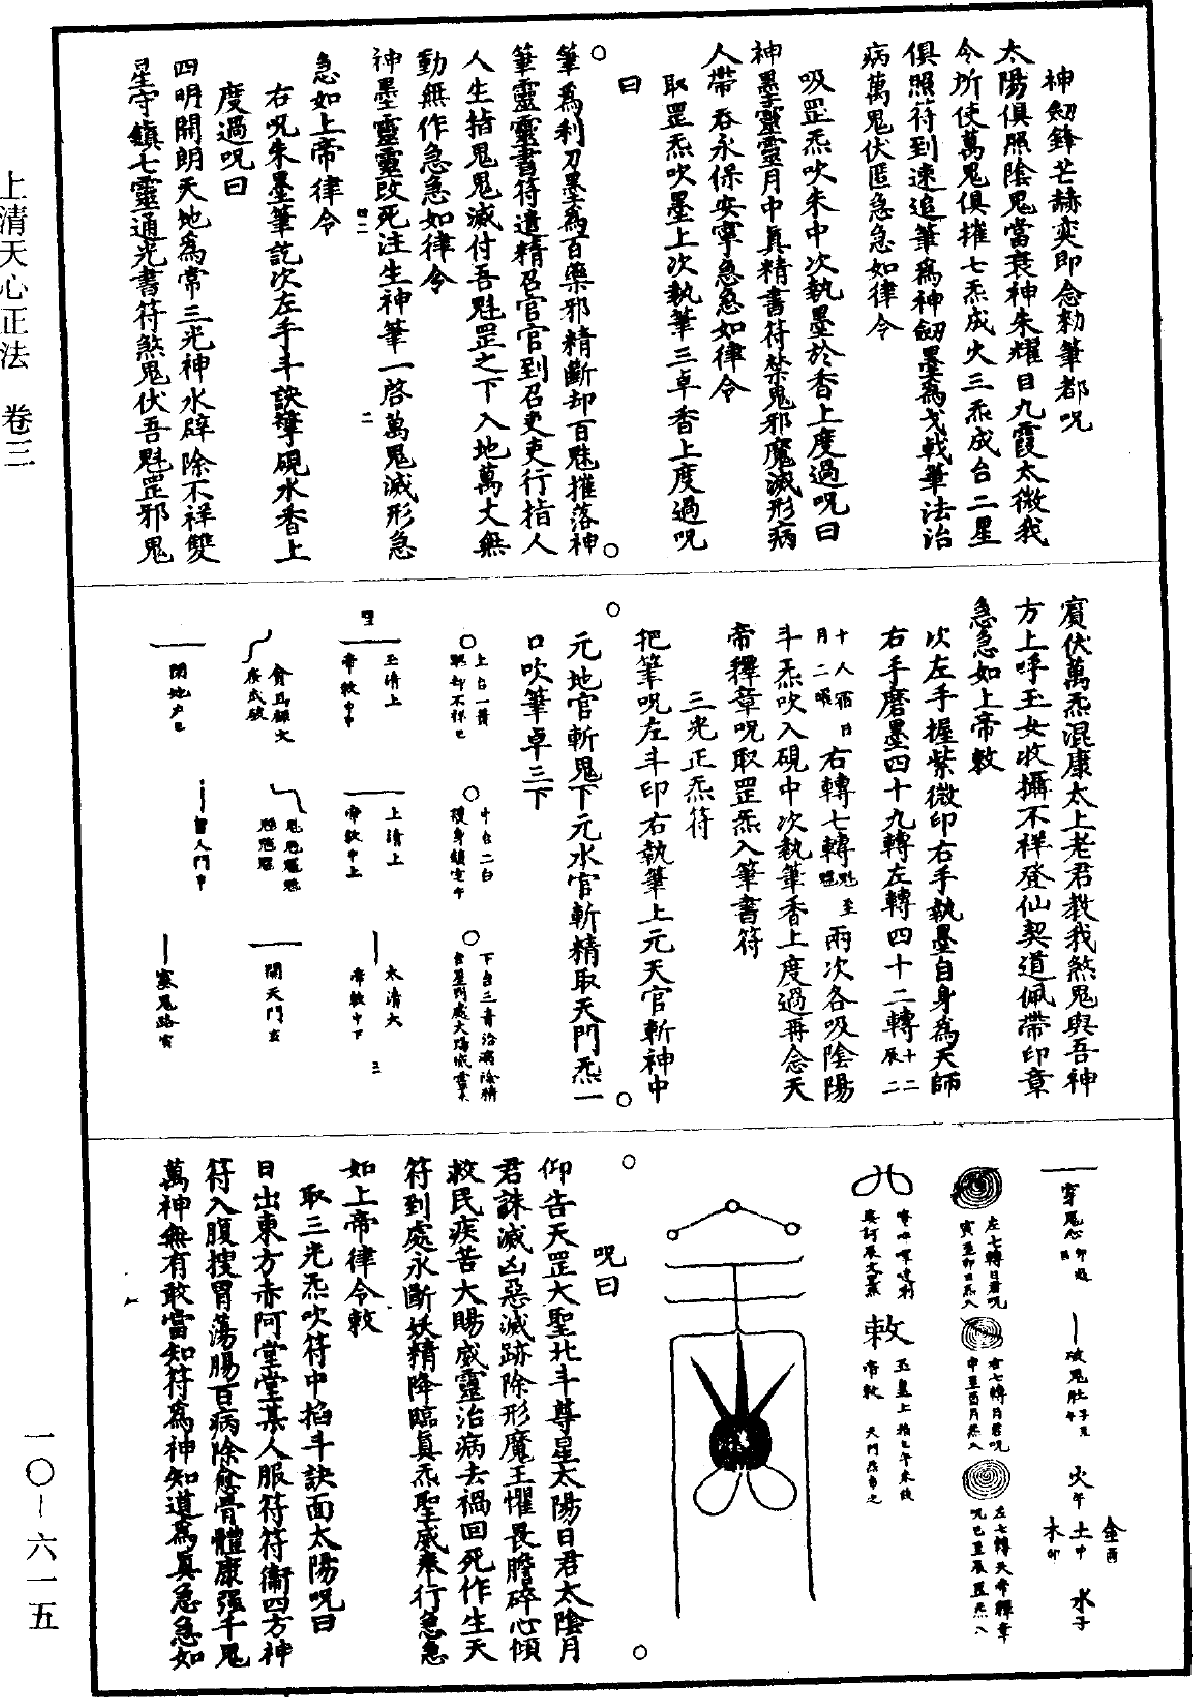 神劒鋒芒赫奕即念勑筆都呪
太陽俱照陰鬼當衰神朱耀日九霞太微我
令所使萬鬼俱摧七炁成火三炁成台二星
俱照符到速追筆爲神劒墨爲戈戟筆法治
病萬鬼伏匿急急如律令
吸罡炁吹朱中次執墨於香上度過呪曰
神墨靈靈月中眞精書符禁鬼邪魔滅形病
人帶吞永保安寧急急如律令
取罡炁吹墨上次執筆三卓香上度過呪
曰
筆爲利刀墨爲百藥邪精斷却百魅摧落神
筆靈靈書符遣精召官官到召吏吏行指人
人生指鬼鬼滅付吾魁罡之下入地萬丈無
動無作急急如律令
神墨靈靈改死注生神筆一啓萬鬼滅形急
急如上帝律令
右呪朱墨筆訖次左手斗訣擎硯水香上
度過呪曰
四明開朗天地爲常三光神水辟除不祥雙
星守鎮七靈通光書符煞鬼伏吾魁罡邪鬼
賓伏萬炁混康太上老君教我煞鬼與吾神
方上呼玉女收攝不祥登仙契道佩帶印章
急急如上帝敕
次左手握紫微印右手執墨自身爲天師
右手磨墨四十九轉左轉四十二轉十二辰二
十八宿日月二曜右轉七轉魁至兩次各吸陰陽
斗炁吹入硯中次執筆香上度過再念天
帝釋章呪取罡炁入筆書符
三光正炁符
把筆呪左斗印右執筆上元天官斬神中
元地官斬鬼下元水官斬精取天門炁一
口吹筆卓三下
上台一黃
中台二白
護身鎮宅午
玉清上
帝敕中申
上清上
帝敕中上
太清大
帝敕中下
開天門亥
閉地戶巳
留人門申
塞鬼路寅
穿鬼心
破鬼肚
火午
土中
水子
金酉
木卯
左七轉日君呪
右七轉月君呪
左七轉天帝釋章
敕
玉皇上
帝敕
呪曰
仰告天罡大聖北斗尊星太陽日君太陰月
君誅滅凶惡滅跡除形魔王懼畏膽碎心傾
救民疾苦大賜威靈治病去禍回死作生天
符到處永斷妖精降臨眞炁聖威奉行急急
如上帝律令敕
取三光炁吹符中掐斗訣面太陽呪曰
日出東方赤阿堂堂某人服符符衞四方神
符入腹搜胃蕩腸百病除愈骨體康强千鬼
萬神無有敢當知符爲神知道爲眞急急如
上清天心正法 卷三
一〇—六一五